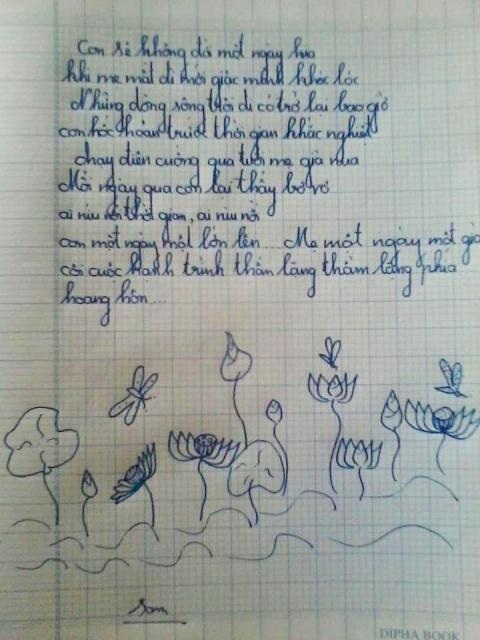 Con sẽ không đợi một ngày kia
khi mẹ mất đi mới giật mình khóc lóc
Những dòng sông trôi đi có trở lại bao giờ
con hốt hoảng trước thời gian khắc nghiệt
chạy điên cuồng qua tuổi mẹ già nua
Mỗi ngày qua con lại thấy bơ vơ
ai níu nổi thời gian, ai níu nổi
con một ngày một lớn lên... Mẹ một ngày một già
cõi cuộc hành trình thầm lặng thầm lặng phía
hoang hôn...
Som
DIPHA BOOK